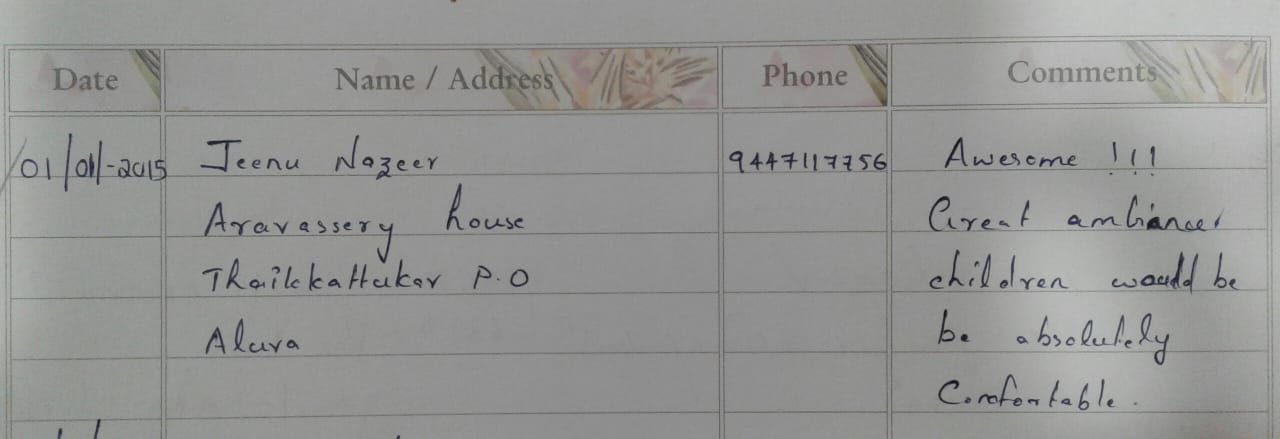 Date Name / Address Phone Comments
01/01-2015 Jeenu Nazeer 9447117756 Awesome !!!
Aravassery house Great ambiance,
Thaikkattukar P.O children would be
Aluva be absolutely
Comfortable.